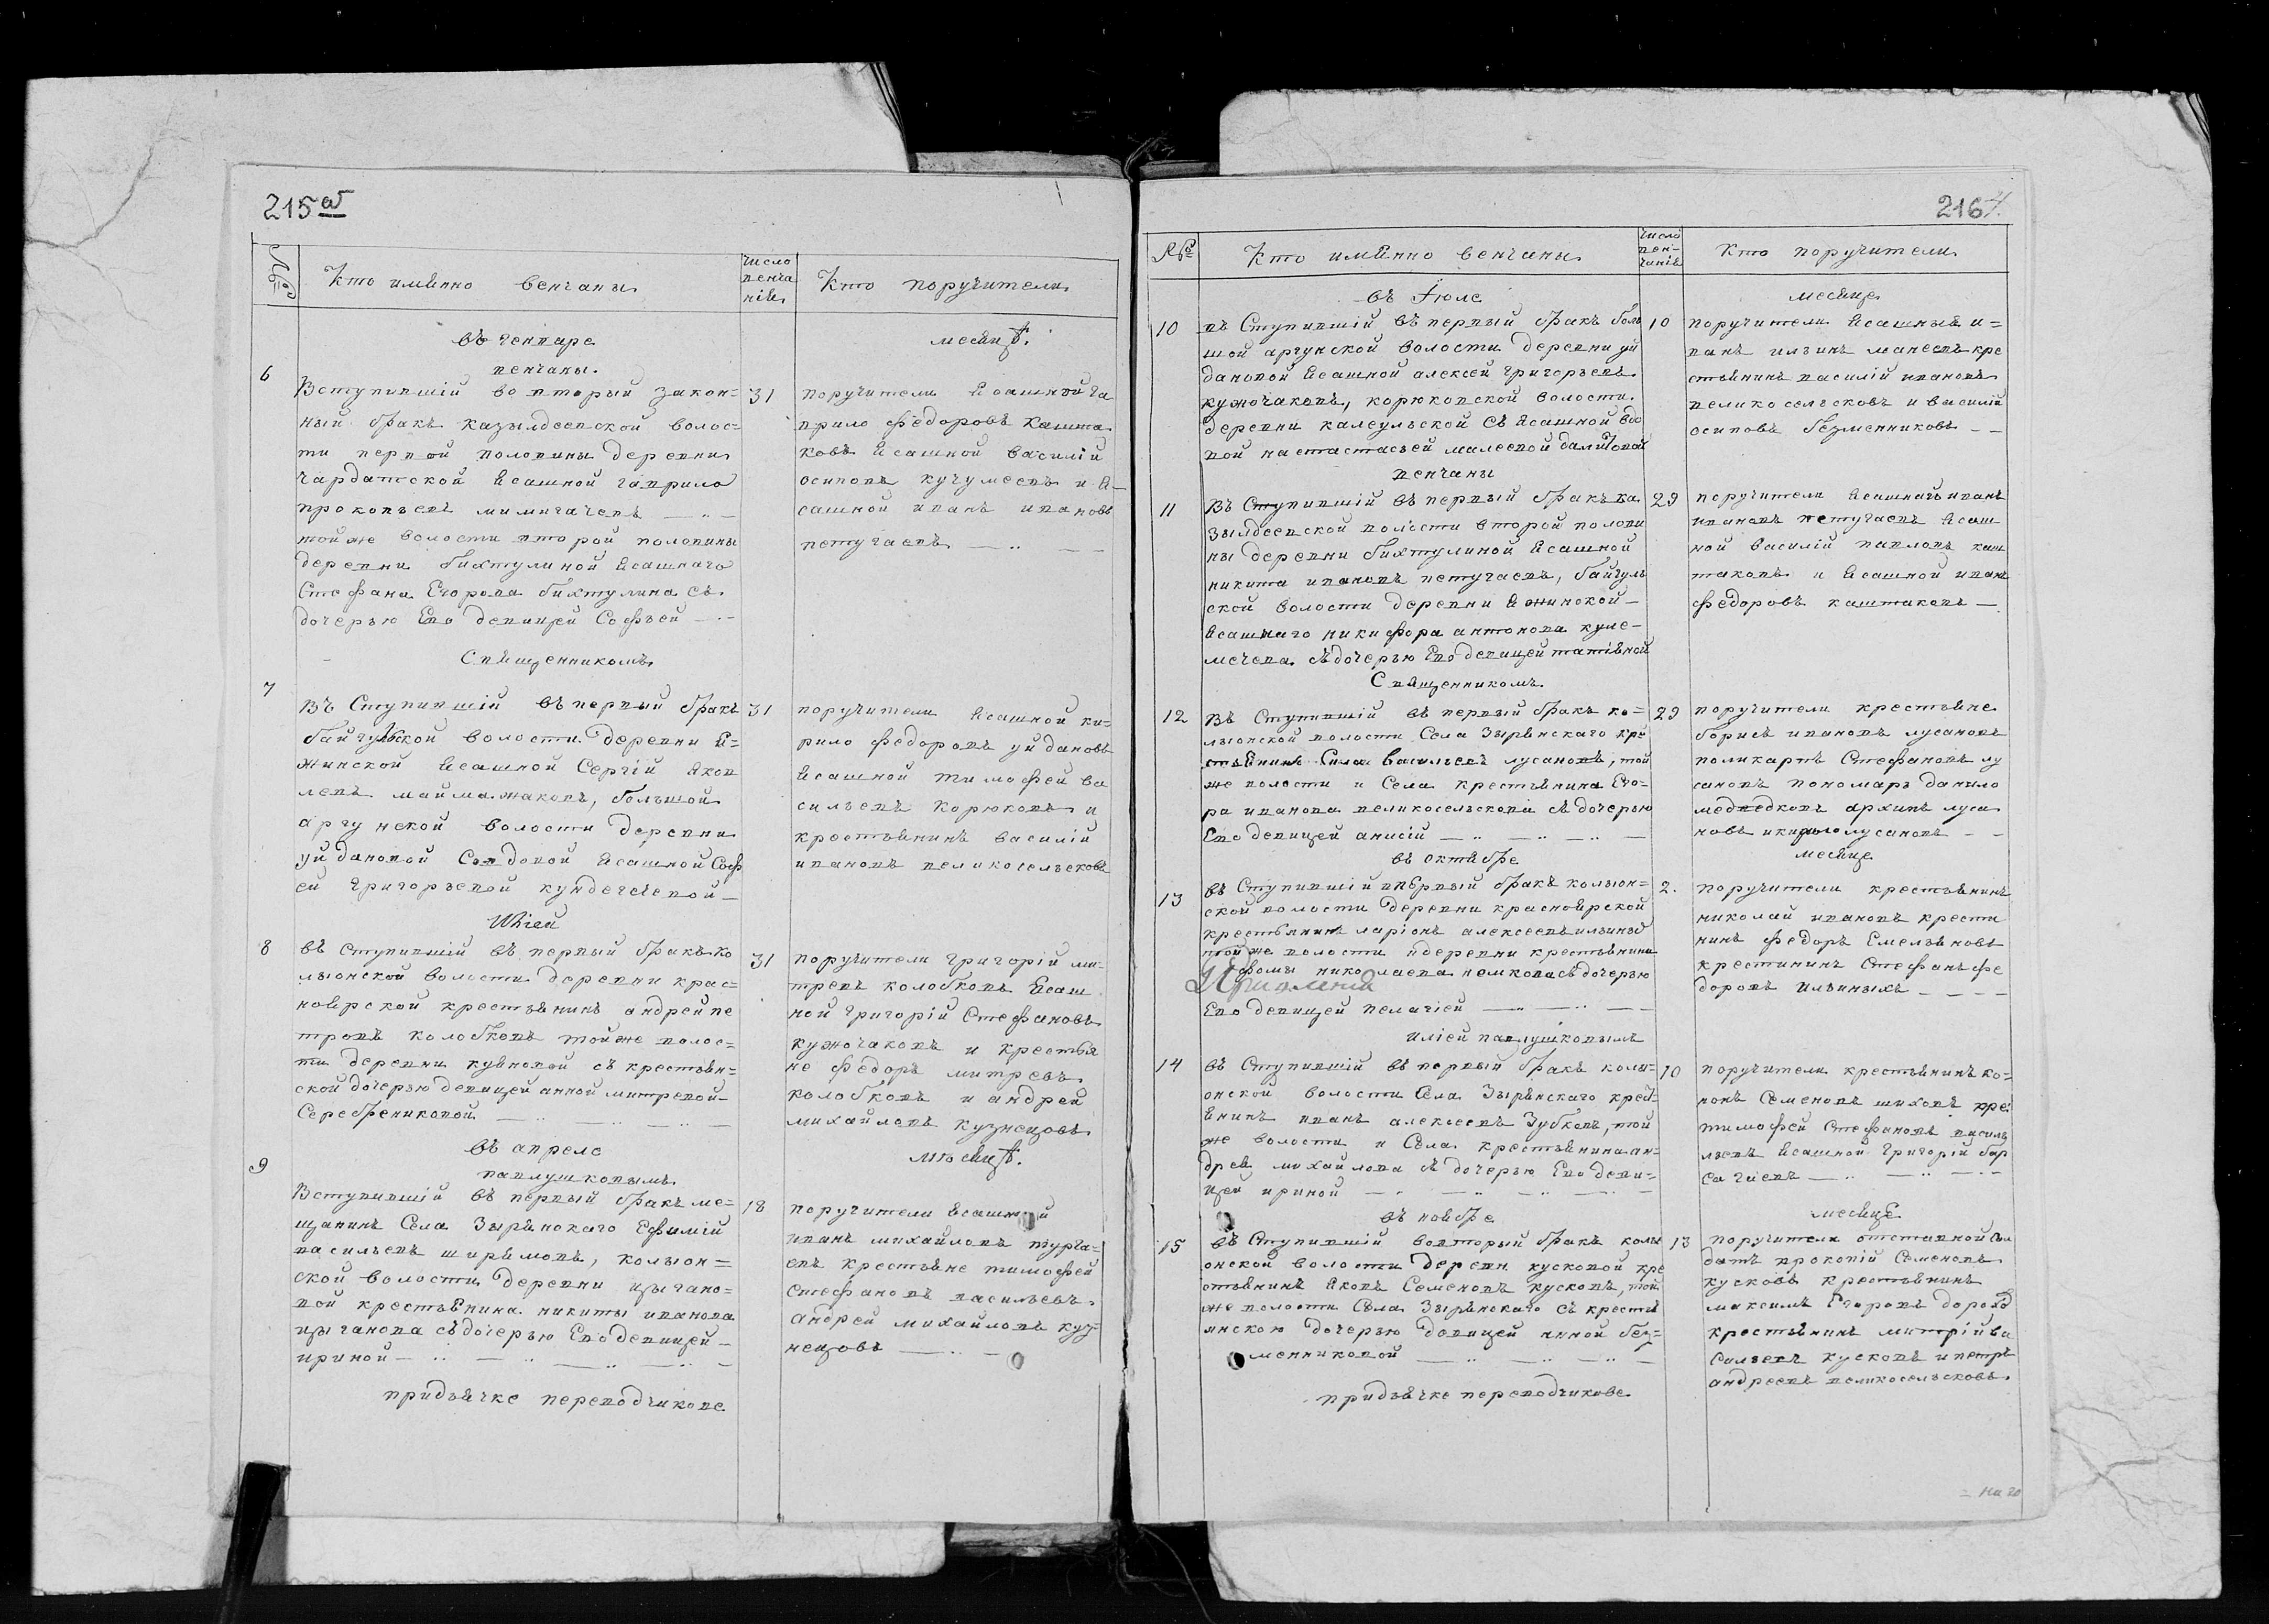 215 об
№
Кто имянно венчаны
число венчанiя
Кто поручители
въ генваре
месяцѣ.
венчаны.
6
Вступившiй во вторый закон=
ный бракъ казылдеевской волос=
ти первой половины деревни
чардатской ясашной гаврило
прокопьевъ мимигачевъ
той же волости второй половины
деревни бихтулиной ясашнаго
Стефана Егорова бихтулина съ
дочерью Ево девицей Софьей
31
поручители ясашной га
врило Федоровъ кашта
ковъ ясашной василiй
осиповъ кучумеевъ и я-
сашной иванъ ивановъ
петугаевъ
Священникомъ
7
Въ Ступившiй въ первый бракъ
байгульской волости деревни я=
жинской ясашной Сергiй яков
левъ маймажаковъ, большой
аргунской волости деревни
уйдановой Совдовой ясашной Соф
ей григорьевой кундечечевой
31
поручители ясашной ки=
рило федоровъ уйдановъ
ясашной тимофей ва
сильевъ корюковъ и
крестьянинъ василiй
ивановъ великосельсковъ
Илiей
8
въ Ступившiй въ первый бракъ ко
лыонской волости деревни крас=
ноярской крестьянинъ андрей пе
тровъ колобковъ той же волос=
ти деревни куяновой съ крестьян=
ской дочерью девицей анной митревой
Серебрениковой
31
поручители григорiй ми=
тревъ колобковъ ясаш
ной григорiй Стефановъ
кужочаковъ и крестья
не федоръ митревъ
колобковъ и андрей
михайловъ кузнецовъ
въ апреле
мѣсяцѣ.
павлушковымъ
9
Вступившiй въ первый бракъ ме=
щанинъ Села Зырянскаго Ефимiй
васильевъ ширямовъ, колыон=
ской волости деревни цыгано=
вой крестьянина никиты иванова
цыганова съ дочерью Ево девицей
ириной
18
поручители ясашной
иванъ михайловъ турга=
евъ крестьяне тимофей
Стефановъ васильевъ
андрей михайловъ куз=
нецовъ
придьячке переводчикове
216
№
Кто имянно венчаны
число венчанiя
Кто поручители
въ Iюле
месяце
10
въ Ступившiй въ первый бракъ боль
шой аргунской волости деревни уй
дановой ясашной алексей григорьевъ
кужочаковъ, корюковской волости
деревни калеульской съ ясашной вдо
вой настасьей малеевой
10
поручители ясашныя и=
ванъ ильинъ манеевъ кре
стьянинъ василiй ивановъ
великосельсковъ и василiй
осиповъ безменниковъ
венчаны
11
Въ Ступившiй въ первый бракъ ка
зылдеевской волости второй полови
ны деревни бихтулиной ясашной
никита ивановъ петугаевъ, байгуль
ской волости деревни яжинской
ясашнаго никифора антонова куле-
мечева съ дочерью Ево девицей татiяной
29
поручители ясашной иванъ
ивановъ петугаевъ ясаш
ной василiй павловъ каш
таковъ и ясашной иванъ
федоровъ каштаковъ
Священникомъ
12
Въ Ступившiй въ первый бракъ ко=
лыонской волости Села Зырянскаго кре
стьянинъ Сила васильевъ лусановъ, той
же волости и Села крестьянина Его=
ра иванова великосельскова съ дочерью
Ево девицей анисiй
29
поручители крестьяне
борисъ ивановъ лусановъ
поликарпъ Стефановъ лу
сановъ пономарь данило
медведковъ архипъ луса
новъ и кирило лусановъ
въ октябре
месяце
13
въ Ступившiй въ первый бракъ колыон=
ской волости деревни красноярской
крестьянинъ ларiонъ алексеевъ ильиныхъ
той же волости и деревни крестьянина
фомы николаева немкова съ дочерью
Ево девицей пелагiей
2.
поручители крестьянинъ
николай ивановъ крести
нинъ федоръ Емельяновъ
крестининъ Стефанъ фе
доровъ ильиныхъ
илiей павлушковымъ
14
въ Ступившiй въ первый бракъ колы=
онской волости Села Зырянскаго крест
янинъ иванъ алексеевъ Зубковъ, той
же волости и Села крестьянина ан=
дрея михайлова съ дочерью Ево деви=
цей ириной
10
поручители крестьянинъ ко=
нонъ Семеновъ шиховъ кре
тимофей Стефановъ василь
льевъ ясашной григорiй бар
сагаевъ
въ ноябре
месяце
15
въ Ступившiй вовторый бракъ колы
онской волости деревн кусковой кре
стьянинъ яковъ Семеновъ кусковъ, той
же волости Села Зырянскаго съ крестья
янскою дочерью девицей анной без=
менниковой
13
поручители отставной Сол
датъ прокопiй Семеновъ
кусковъ крестьянинъ
максимъ Егоровъ
крестьянинъ митрiй ва
сильевъ кусковъ и петръ
андреевъ великосельсковъ.
придьячке переводчикове